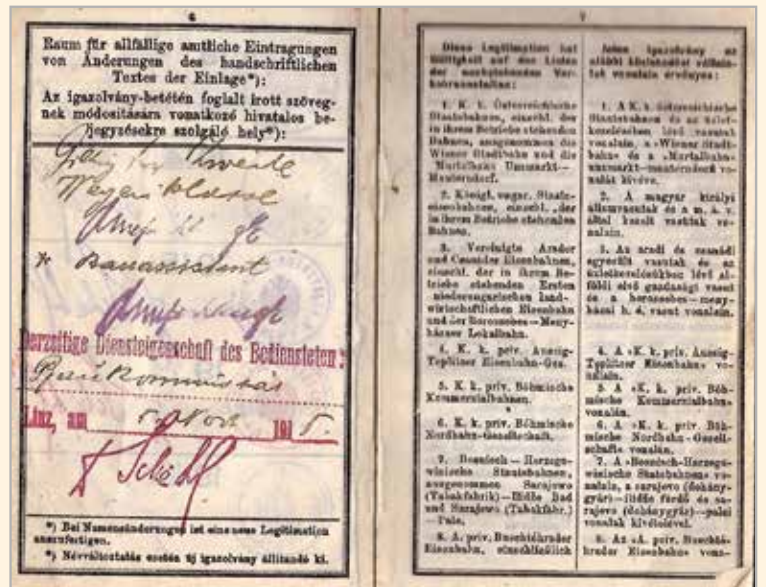 6
Raum für allfällige amtliche Eintragungen
von Änderungen des handschriftlichen
Textes der Einlage*):
Az igazolvány-betétén foglalt irott szöveg-
nek módositására vonatkozó hivatalos be-
jegyzésekre szolgáló hely*):
Bauassistent
Derzeitige Diensteigenschaft des Bediensteten:
Baukommissär
Linz, am 5. Nov. 1915.
*) Bei Namensänderungen ist eine neue Legitimation
anzufertigen.
*) Névváltoztatás esetén új igazolvány állitandó ki.
7
Diese Legitimation hat
Gültigkeit auf den Linien
der nachstehenden Ver-
kehrsanstalten:
1. K. k. Österreichische
Staatsbahnen, einschl. der
in ihrem Betriebe stehenden
Bahnen, ausgenommen die
Wiener Stadtbahn und die
Murtalbahn Unzmarkt—
Mauterndorf.
2. Königl. ungar. Staats-
eisenbahnen, einschl. der
in ihrem Betriebe stehenden
Bahnen.
3. Vereinigte Arader
und Csanáder Eisenbahnen,
einschl. der in ihrem Be-
triebe stehenden Ersten
niederungarischen land-
wirtschaftlichen Eisenbahn
und der Borossebes—Meny-
házaer Lokalbahn.
4. K. k. priv. Aussig-
Teplitzer Eisenbahn-Ges.
5. K. k. priv. Böhmische
Kommerzialbahnen.
6. K. k. priv. Böhmische
Nordbahn-Gesellschaft.
7. Bosnisch-Herzego-
winische Staatsbahnen,
ausgenommen Sarajewo
(Tabakfabrik)—Ilidže Bad
und Sarajewo (Tabakfabr.)
—Pale.
8. A. priv. Buschtěhrader
Eisenbahn, einschließlich
Jelen igazolvány az
alábbi közlekedési vállala-
tok vonalain érvényes:
1. A K. k. österreichische
Staatsbahnen és az üzlet-
kezelésében lévő vasutak
vonalain, a »Wiener Stadt-
bahn« és a »Murtalbahn«
unzmarkt—mauterndorfi vo-
nalát kivéve.
2. A magyar királyi
államvasutak és a m. á. v.
által kezelt vasutak vo-
nalain.
3. Az aradi és csanádi
egyesült vasutak és az
üzletkezelésükben lévő al-
földi első gazdasági vasut
és a borossebes—meny-
házai h. é. vasut vonalain.
4. A »K. k. priv. Aussig-
Teplitzer Eisenbahn« vo-
nalain.
5. A »K. k. priv. Böh-
mische Kommerzialbahn«
vonalán.
6. A »K. k. priv. Böh-
mische Nordbahn-Gesell-
schaft« vonalán.
7. A »Bosnisch-Herzego-
winische Staatsbahnen« vo-
nalain, a sarajevo (dohány-
gyár)—ilidže fürdő és sa-
rajevo (dohánygyár)—palei
vonalak kivételével.
8. Az »A. priv. Buschtě-
hrader Eisenbahn« vona-